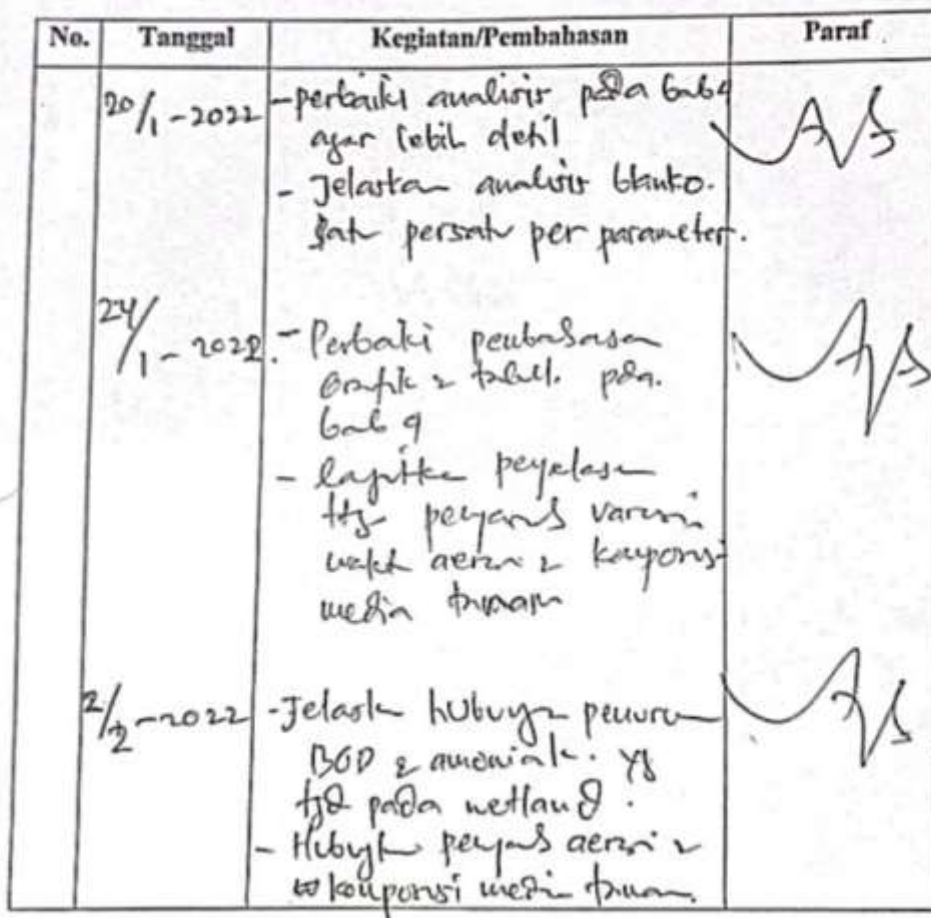 No. Tanggal Kegiatan/Pembahasan Paraf
20/1-2022 -perbaiki analisis pada bab 4
agar lebih detil
- Jelaskan analisis blanko.
satu persatu per parameter.
24/1-2022. - Perbaiki pembahasan
Grafik & tabel. pda.
bab 4
- penjelasan
ttg pengaruh variasi
waktu aerasi & komposisi
media tanam
2/2-2022 -Jelaskan hubungan penurunan
BOD & amoniak. yg
tjd pada wetland.
- Hubungkan pengaruh aerasi &
komposisi media tanam.